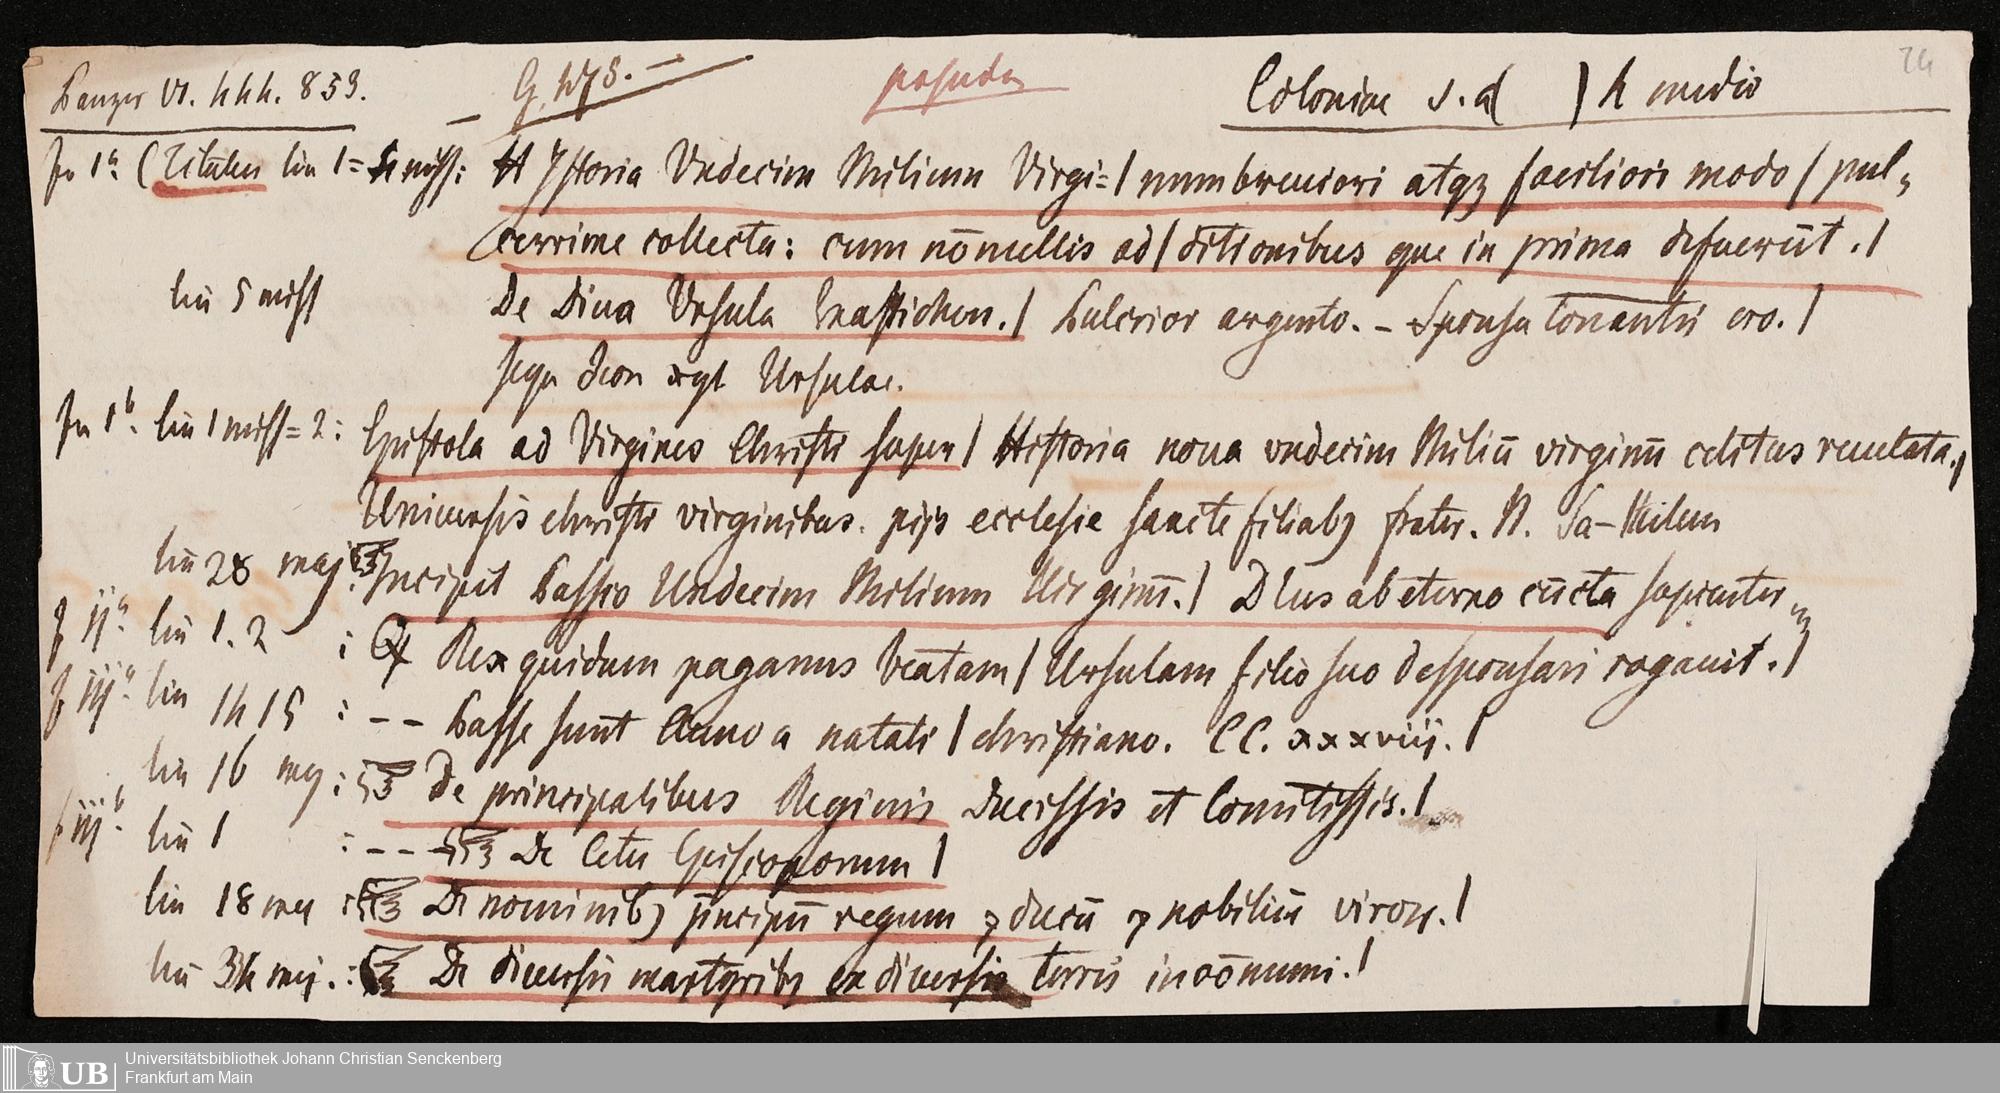 Panzer VI. 444. 853. G. 475. 24
Coloniae s.d | 4 medio
Fo 1a (Titulus lin 1=4 miss: Hystoria Undecim Milium Virgi=| num breuiori atqꝫ faciliori modo | pul
cerrime collecta: cum nōnullis ad| ditionibus que in prima defuerūt. |
lin 5 miss De Diua Ursula Exastichon. | Pulcrior argento. – Sponsa tonantis ero. |
sequ Icon Ursulae.
Fo 1b. lin 1 miss=2: Epistola ad Virgines Christi super | Historia noua vndecim Miliū virginū celitus reuelata. |
Uniuersis christi virginibus. pijs ecclesie sancte filiabꝫ frater. N. Sa–
lin 28 maj: Incipit Passio Undecim Milium Virginū. | DEus ab eterno cūcta sapienter
f ija. lin 1. 2 : Rex quidam paganus beatam | Ursulam filio suo desponsari rogauit. |
f iija lin 14 15 : – – Passe sunt Anno a natali | christiano. CC. xxxviij. |
lin 16 maj: De principalibus Reginis Ducissis et Comitissis. |
f iijb. lin 1 : – – De Cetu Episcoporum |
lin 18 maj : De nominibꝫ p̄ncipū regum ⁊ ducū ⁊ nobiliū viroꝝ. |
lin 34 maj. : De diuersis martyribꝫ ex diuersis terris
UB Universitätsbibliothek Johann Christian Senckenberg
Frankfurt am Main